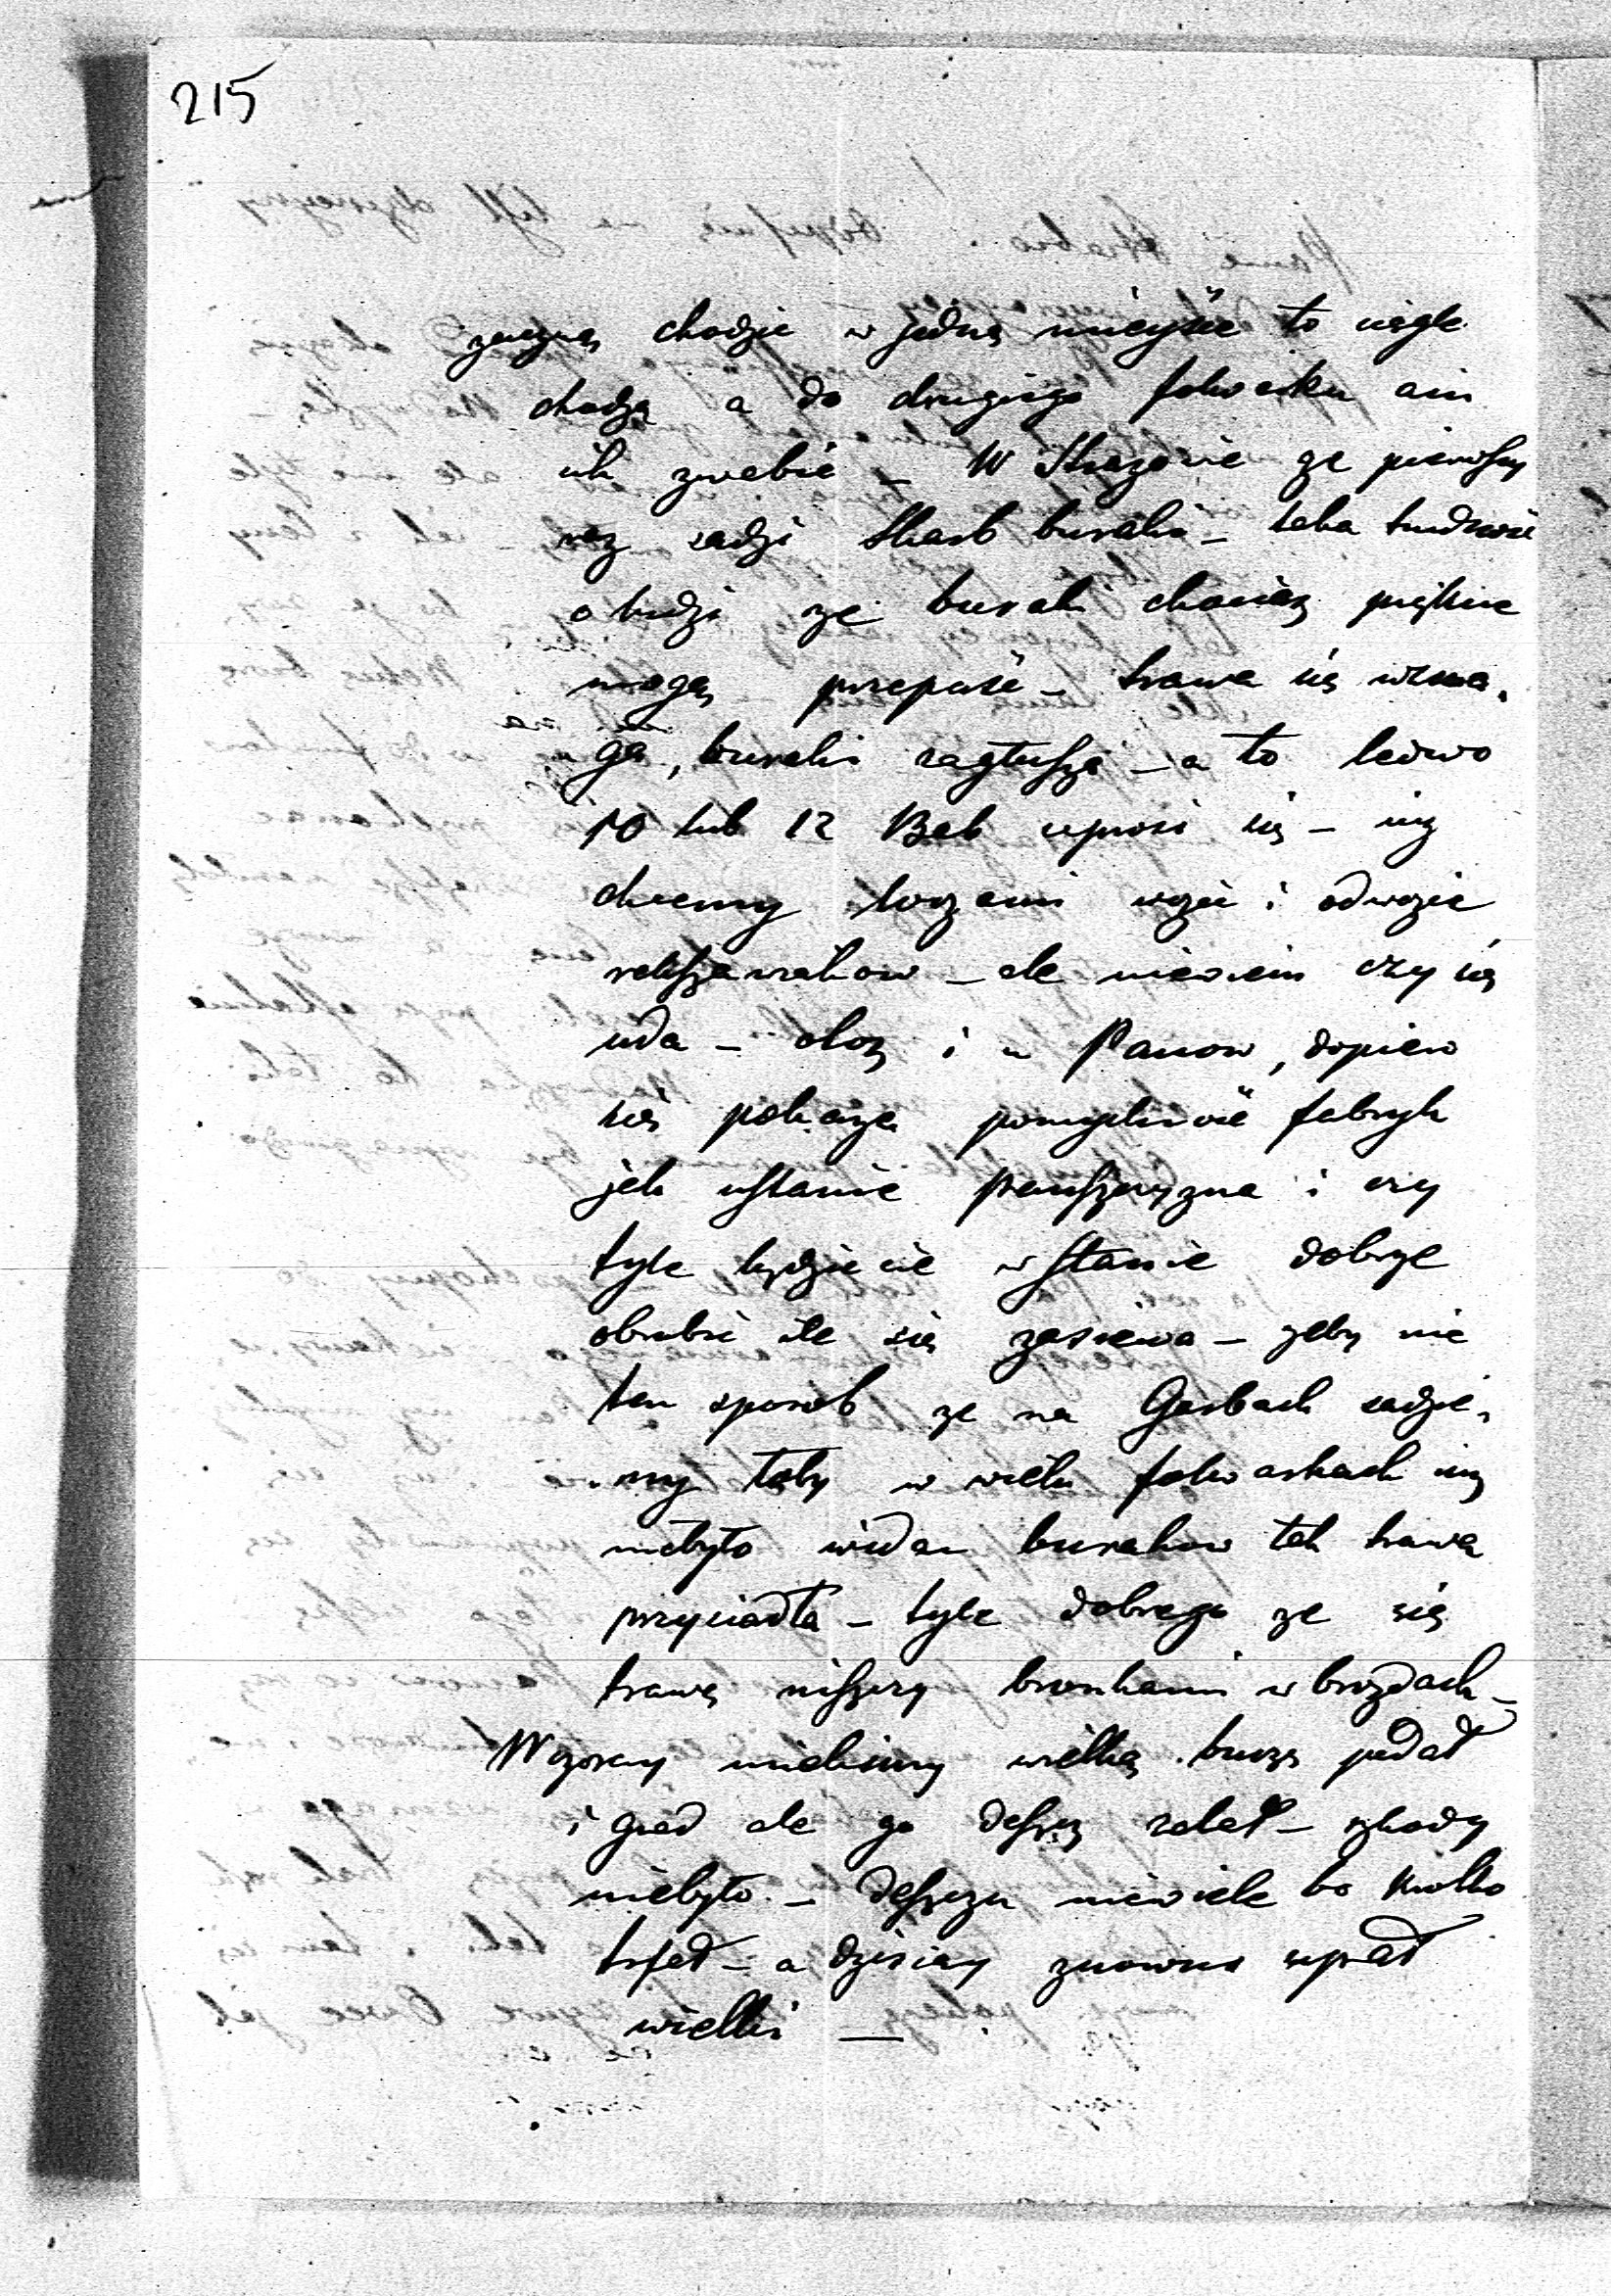 215
zaczną chodzic w jedną mieysce to ciągle
chodzą a do drugiego folwarku ani
ich zwabić – W Skazowie ze pierwszy
raz sadzi Skarb buraki – taka trudność
o ludzi ze buraki chociaz piękne
mogą przepaść – trawa się wzma„
ga, buraki zagłusza – a to ledwo
10 lub 12 Bab uprosi się – iuz
chcemy wozić i odwozić
– ale niewiem czy się
uda – otoz i u Panow, dopiero
się pokaze pomyslność fabryk
jak ustanie Panszczyzna i czy
tyle będziecie wstanie dobrze
obrobić ile się zasiewa – zeby nie
ten sposob ze na Garbach sadzie„
„my toby w wielu folwarkach iuz
niebyło widać burakow tak trawa
przysiadła – tyle dobrego ze się
trawę niszczy bronkami w brozdach –
Wczoray mieliszmy wielką burzę padał
i grad ale go deszcz zalał – szkody
niebyło – deszczu niewiele bo krotko
trfał – a dzisiay znowuz upadł
wielki —